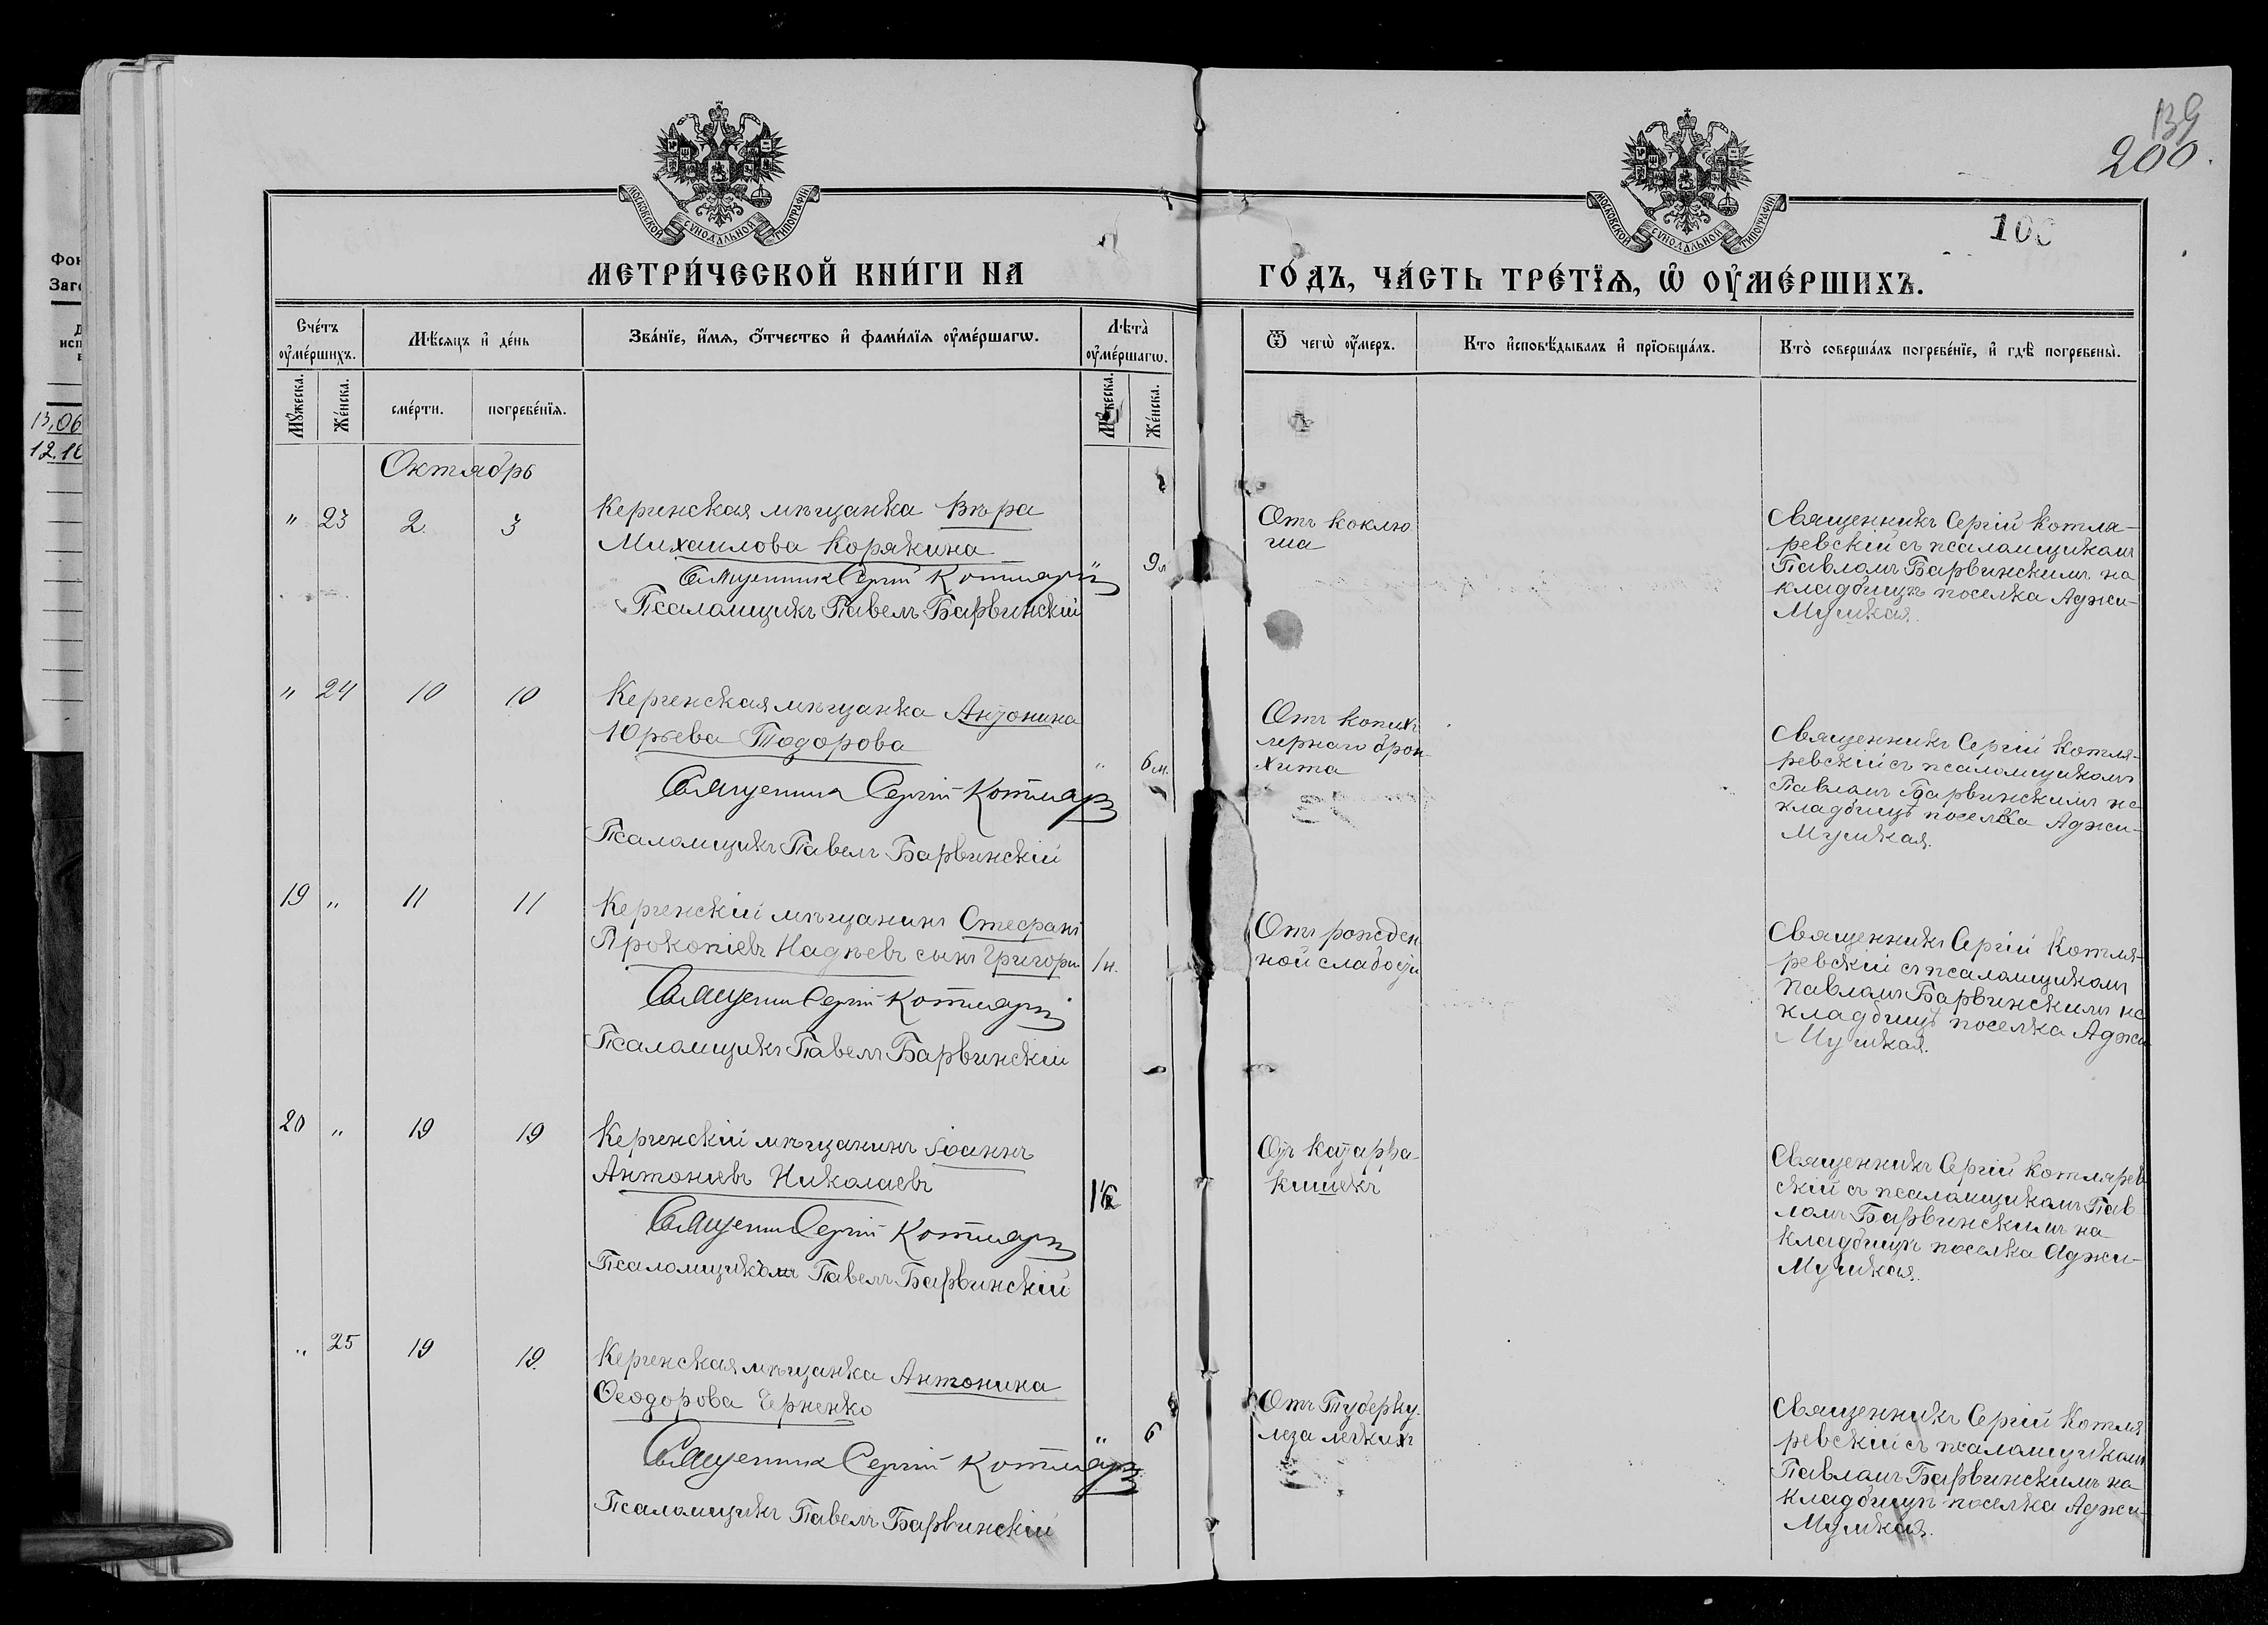 139
200.
100
МОСКОВСКОЙ СѴНОДАЛЬНОЙ ТИПОГРАФІИ
МОСКОВСКОЙ СѴНОДАЛЬНОЙ ТИПОГРАФІИ
МЕТРИ́ЧЕСКОЙ КНИ́ГИ НА
ГО́ДЪ, ЧА́СТЬ ТРЕ́ТЇѦ, Ѡ҆ ОУ҆МЕ́РШИХЪ.
Сче́тъ оу҆ме́ршихъ.
Мѣ́сяцъ и҆ де́нь
Зва́нїе, и҆́мѧ, о҆́тчество и҆ фами́лїѧ оу҆ме́ршагѡ.
Лѣта̀ оу҆ме́ршагѡ.
Ѿ чегѡ̀ оу҆́меръ.
Кто̀ и҆сповѣ́дывалъ и҆ прїѡбща́лъ.
Кто̀ соверша́лъ погребе́нїе, и҆ гдѣ̀ погребены̀.
Мꙋ́жеска.
Же́нска.
сме́рти.
погребе́нїѧ.
Мꙋ́жеска.
Же́нска.
Октябрь
" 23 2. 3
Керченская мѣщанка Вѣра
Михаилова Корякина
" 9м
Священник Сергій Котляр
Псаломщикъ Павелъ Барвинскій
Отъ коклю
ша
Священникъ Сергій Котля-
ревскій съ псаломщикомъ
Павломъ Барвинскимъ на
кладбищѣ поселка Аджи-
Мушкая.
" 24 10 10
Керченская мѣщанка Антонина
Юрьева Тодорова
" 6м.
Священник Сергій Котляр
Псаломщикъ Павелъ Барвинскій
Отъ
лернаго брон-
хита
Священникъ Сергій Котля-
ревскій съ псаломщикомъ
Павломъ Барвинскимъ на
кладбищѣ поселка Аджи-
Мушкая.
19 " 11 11
Керченскій мѣщанинъ Стефанъ
Прокопіевъ Надѣевъ сынъ Григори
1н.
Священник Сергій Котляр
Псаломщикъ Павелъ Барвинскій
Отъ рожден
ной слабости
Священникъ Сергій Котля-
ревскій съ псаломщикомъ
Павломъ Барвинскимъ на
кладбищѣ поселка Аджи
Мушкая.
20 " 19 19
Керченскій мѣщанинъ Іоаннъ
Антоніевъ Николаевъ
Священник Сергій Котляр
Псаломщикомъ Павелъ Барвинскій
Отъ катарра
кишекъ
Священникъ Сергій Котлярев
скій съ псаломщикомъ Пав
ломъ Барвинскимъ на
кладбищѣ поселка Аджи-
Мушкая.
" 25 19 19.
Керченская мѣщанка Антонина
Ѳеодорова Черненко
" 6
Священник Сергій Котляр
Псаломщикъ Павелъ Барвинскій
Отъ Туберку-
леза легкихъ
Священникъ Сергій Котля
ревскій съ псаломщикомъ
Павломъ Барвинскимъ на
кладбищѣ поселка Аджи-
Мушкая.
Фон
Заго
13.06
12.10